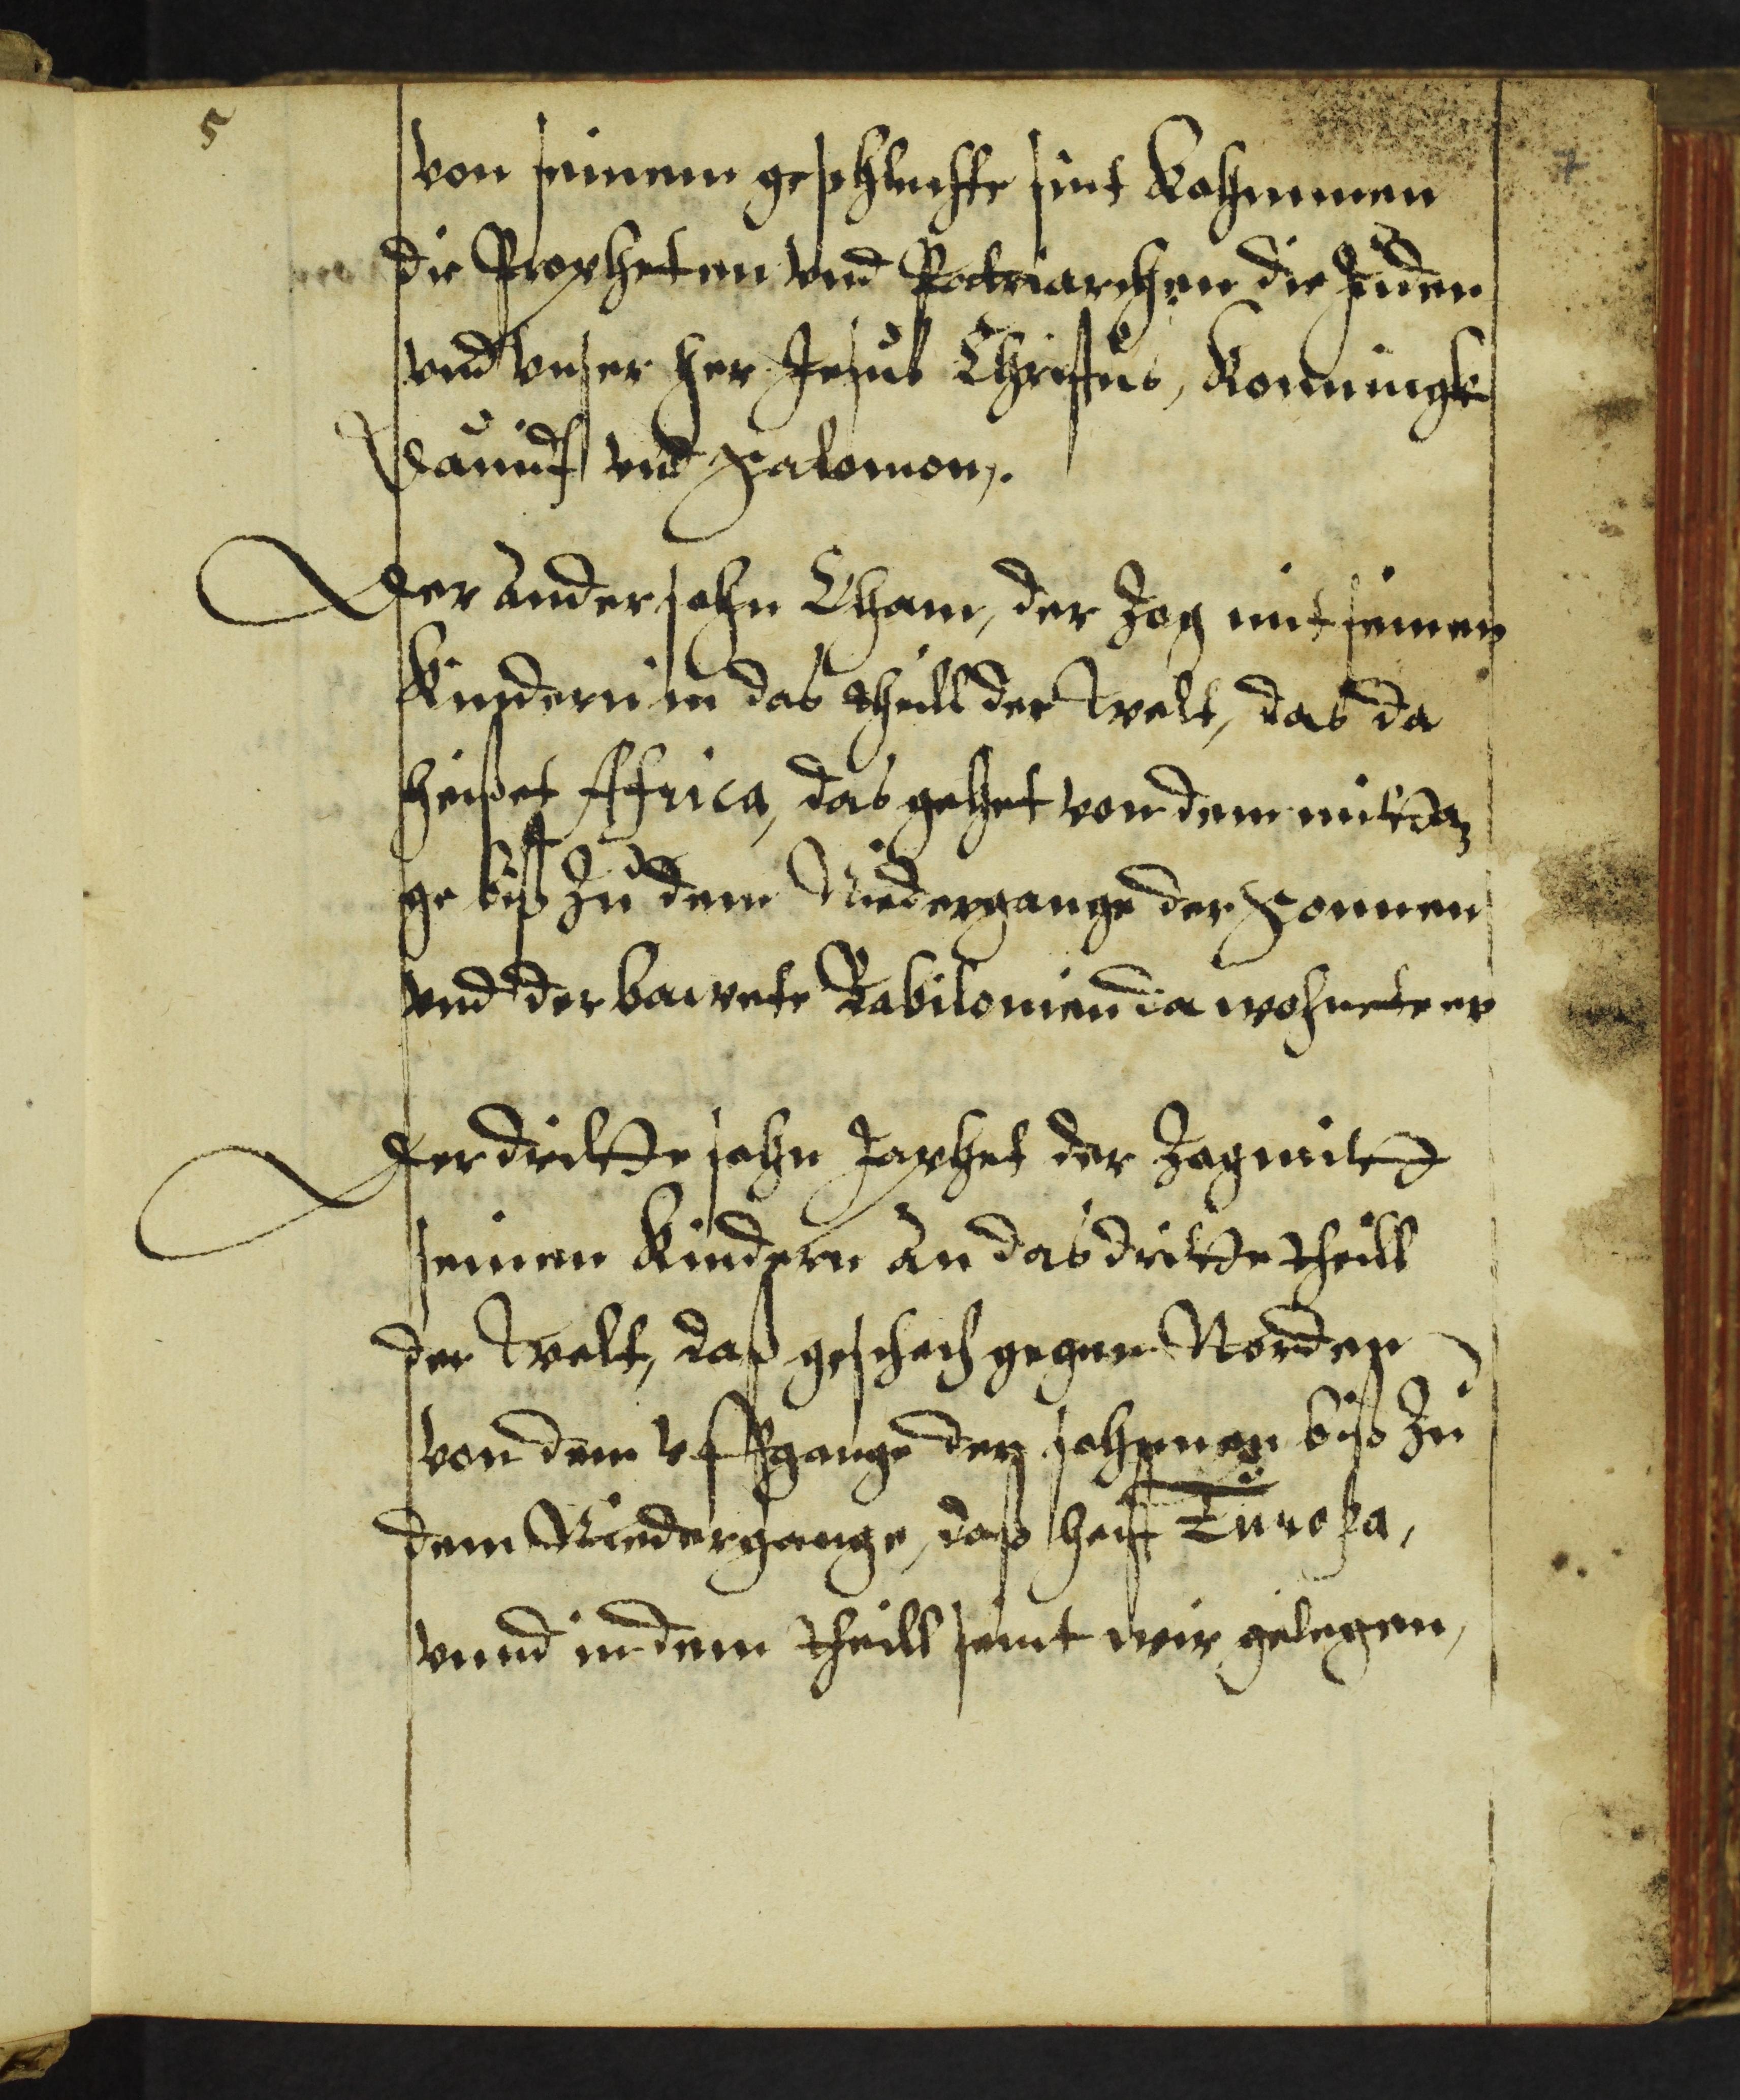 5
von seinem geschlechte sint Kohmmen
die Propheten vnd Patriarchen die Juden
vnd vnser her Jesus Christus, Konningk
Dauidt vnd Salomon,.
Der ander sohn Cham, der Zog mit seinen
Kindern in das theill der Welt, das da
heißet Affrica, das gehet von dem mitta,
ge biß Zu dem Niedergange der Sonnen
vnd der bawete Babilonien da wohnete er
Der dritte sohn Japhet der Zog mitt
seinen Kindern an das dritte theill
der Welt, daß geschach gegen Norden
von dem vffgange der sohnnen biß Zu
dem Niedergange, daß heist Europa,
vnnd in dem theill seint wir gelegen,